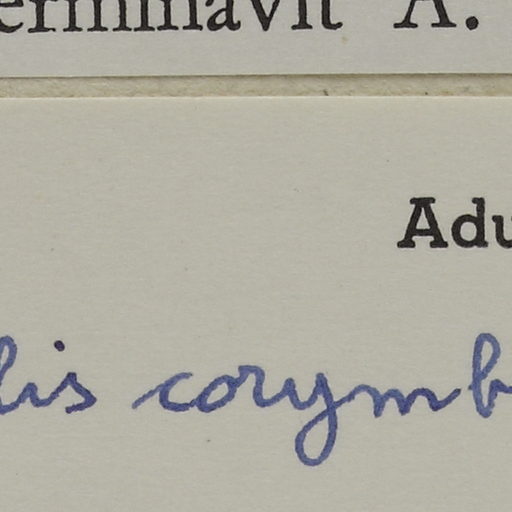 erminavit A.
Adu
lis corymb